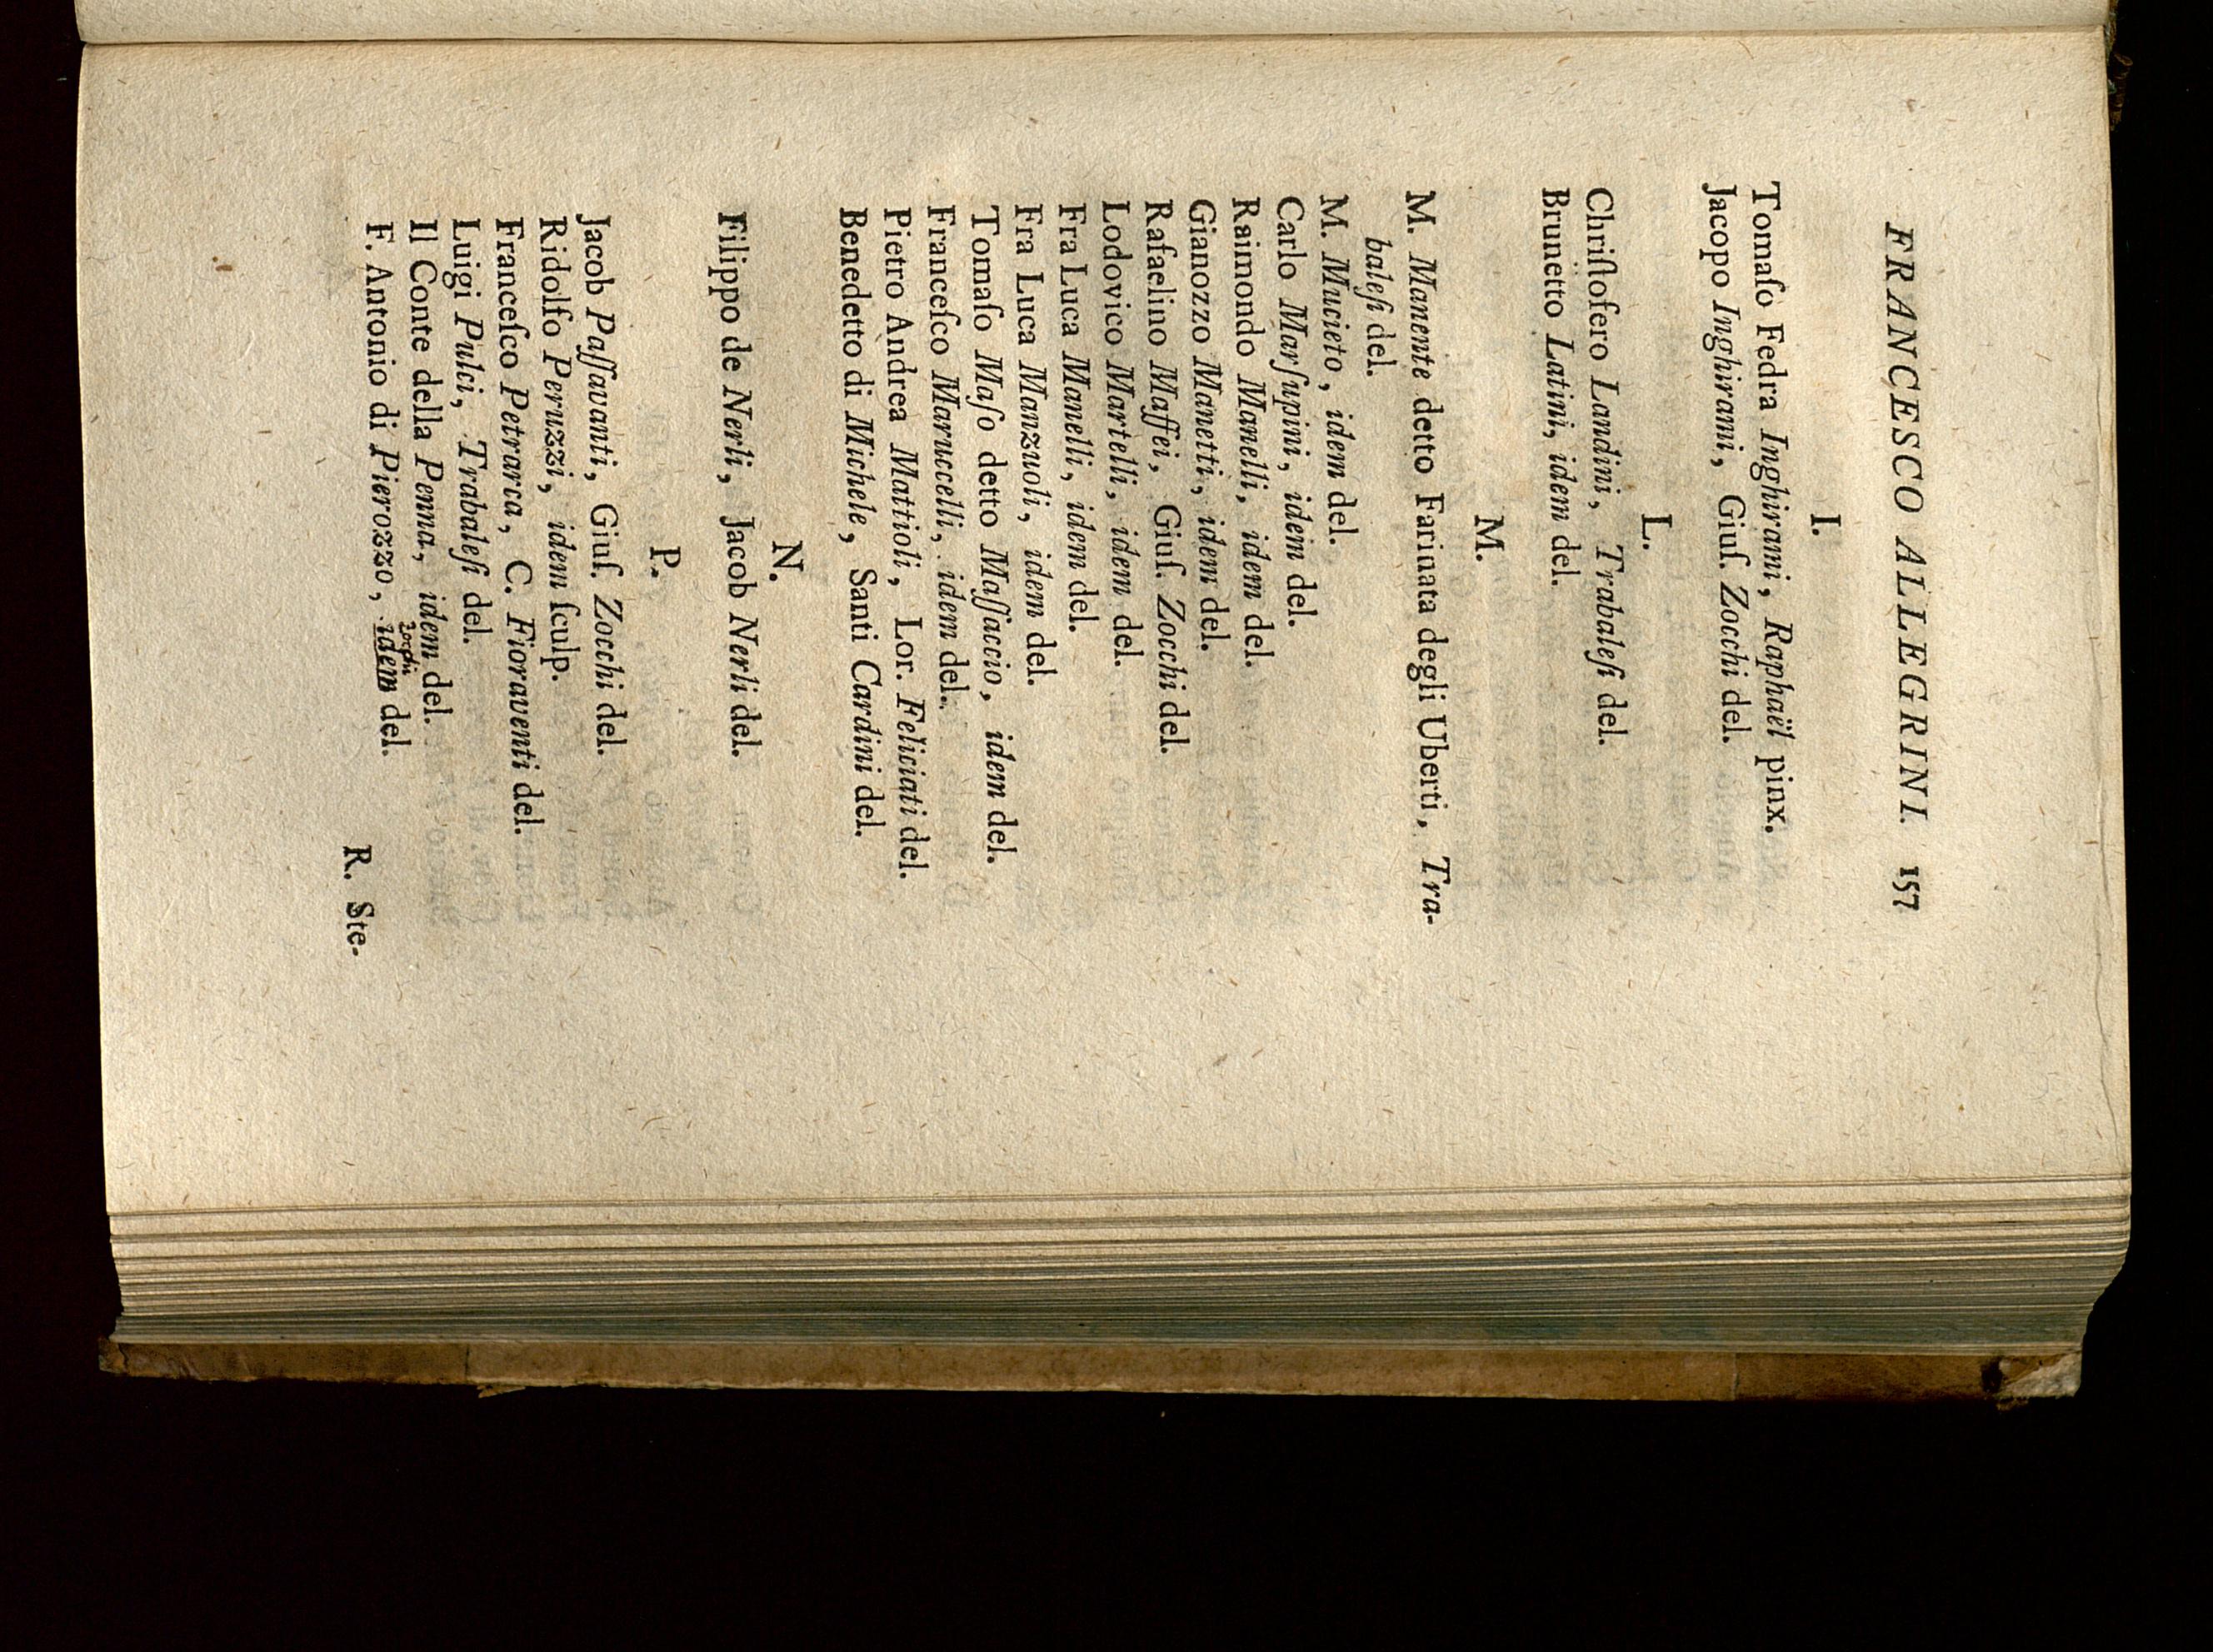 FRANCESCO ALLEGRINI. 157
I.
Tomaſo Fedra Inghirami, Raphaël pinx.
Jacopo Inghirami, Giuſ. Zocchi del.
L.
Chriſtofero Landini, Trabaleſi del.
Brunetto Latini, idem del.
M.
M. Manente detto Farinata degli Uberti, Tra-
baleſi del.
M. Mucieto, idem del.
Carlo Marſupini, idem del.
Raimondo Manelli, idem del.
Gianozzo Manetti, idem del.
Rafaelino Maffei, Giuſ. Zocchi del.
Lodovico Martelli, idem del.
Fra Luca Manelli, idem del.
Fra Luca Manzuoli, idem del.
Tomaſo Maſo detto Maſſaccio, idem del.
Franceſco Maruccelli, idem del.
Pietro Andrea Mattioli, Lor. Feliciati del.
Benedetto di Michele, Santi Cardini del.
N.
Filippo de Nerli, Jacob Nerli del.
P.
Jacob Paſſavanti, Giuſ. Zocchi del.
Ridolfo Peruzzi, idem ſculp.
Franceſco Petrarca, C. Fioraventi del.
Luigi Pulci, Trabaleſi del.
Il Conte della Penna, idem del.
zocchi
F. Antonio di Pierozzo, idem del.
R. Ste-